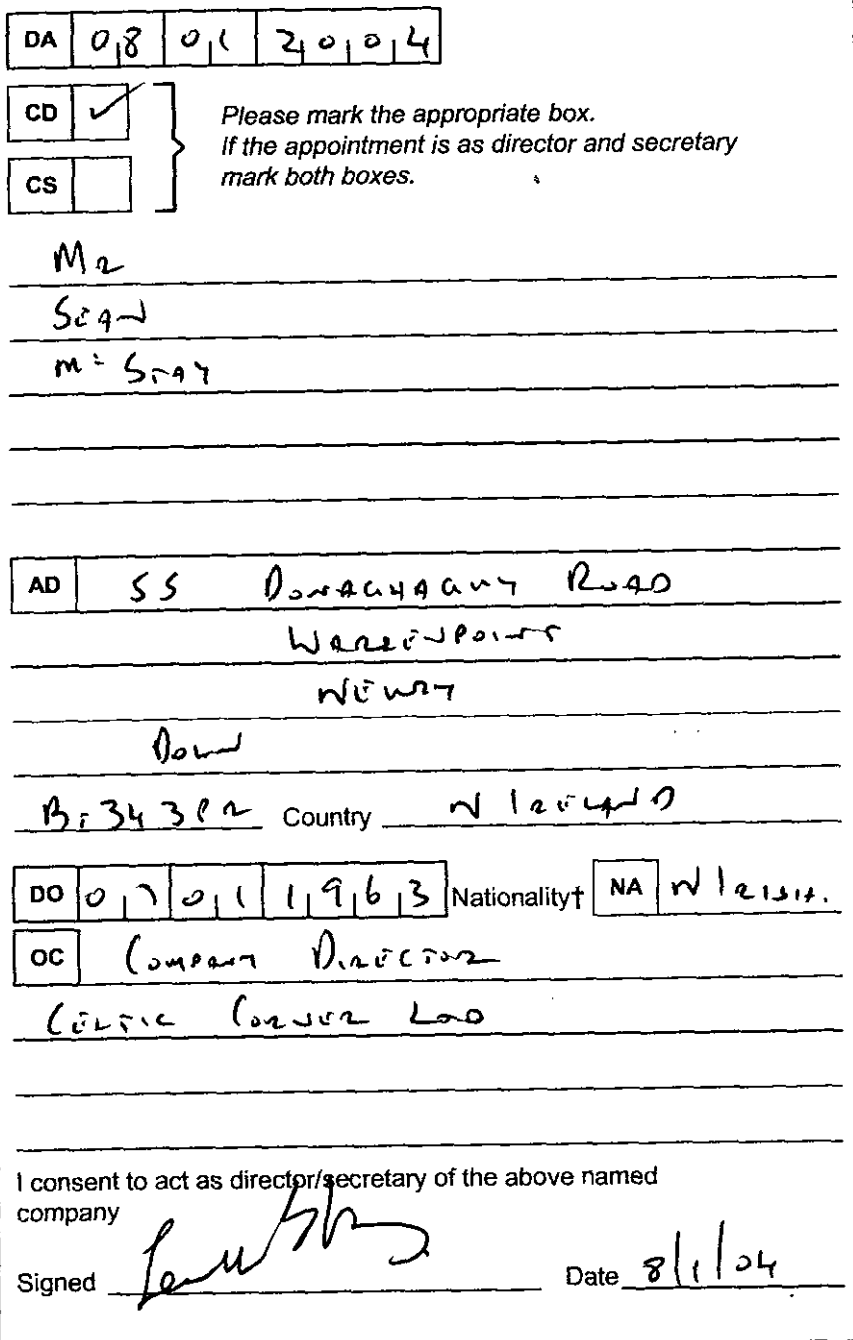 DA 08 01 2004
CD ✓ Please mark the appropriate box.
If the appointment is as director and secretary
CS mark both boxes.
Mr
Sean
Mc Stay
AD 55 Donaghaguy Road
Warrenpoint
Newry
Down
BT34 3PR Country N Ireland
DO 07 01 1963 Nationality† NA N Irish.
OC Company Director
Celtic Corner Ltd
I consent to act as director/secretary of the above named
company
Signed Date 8/1/04